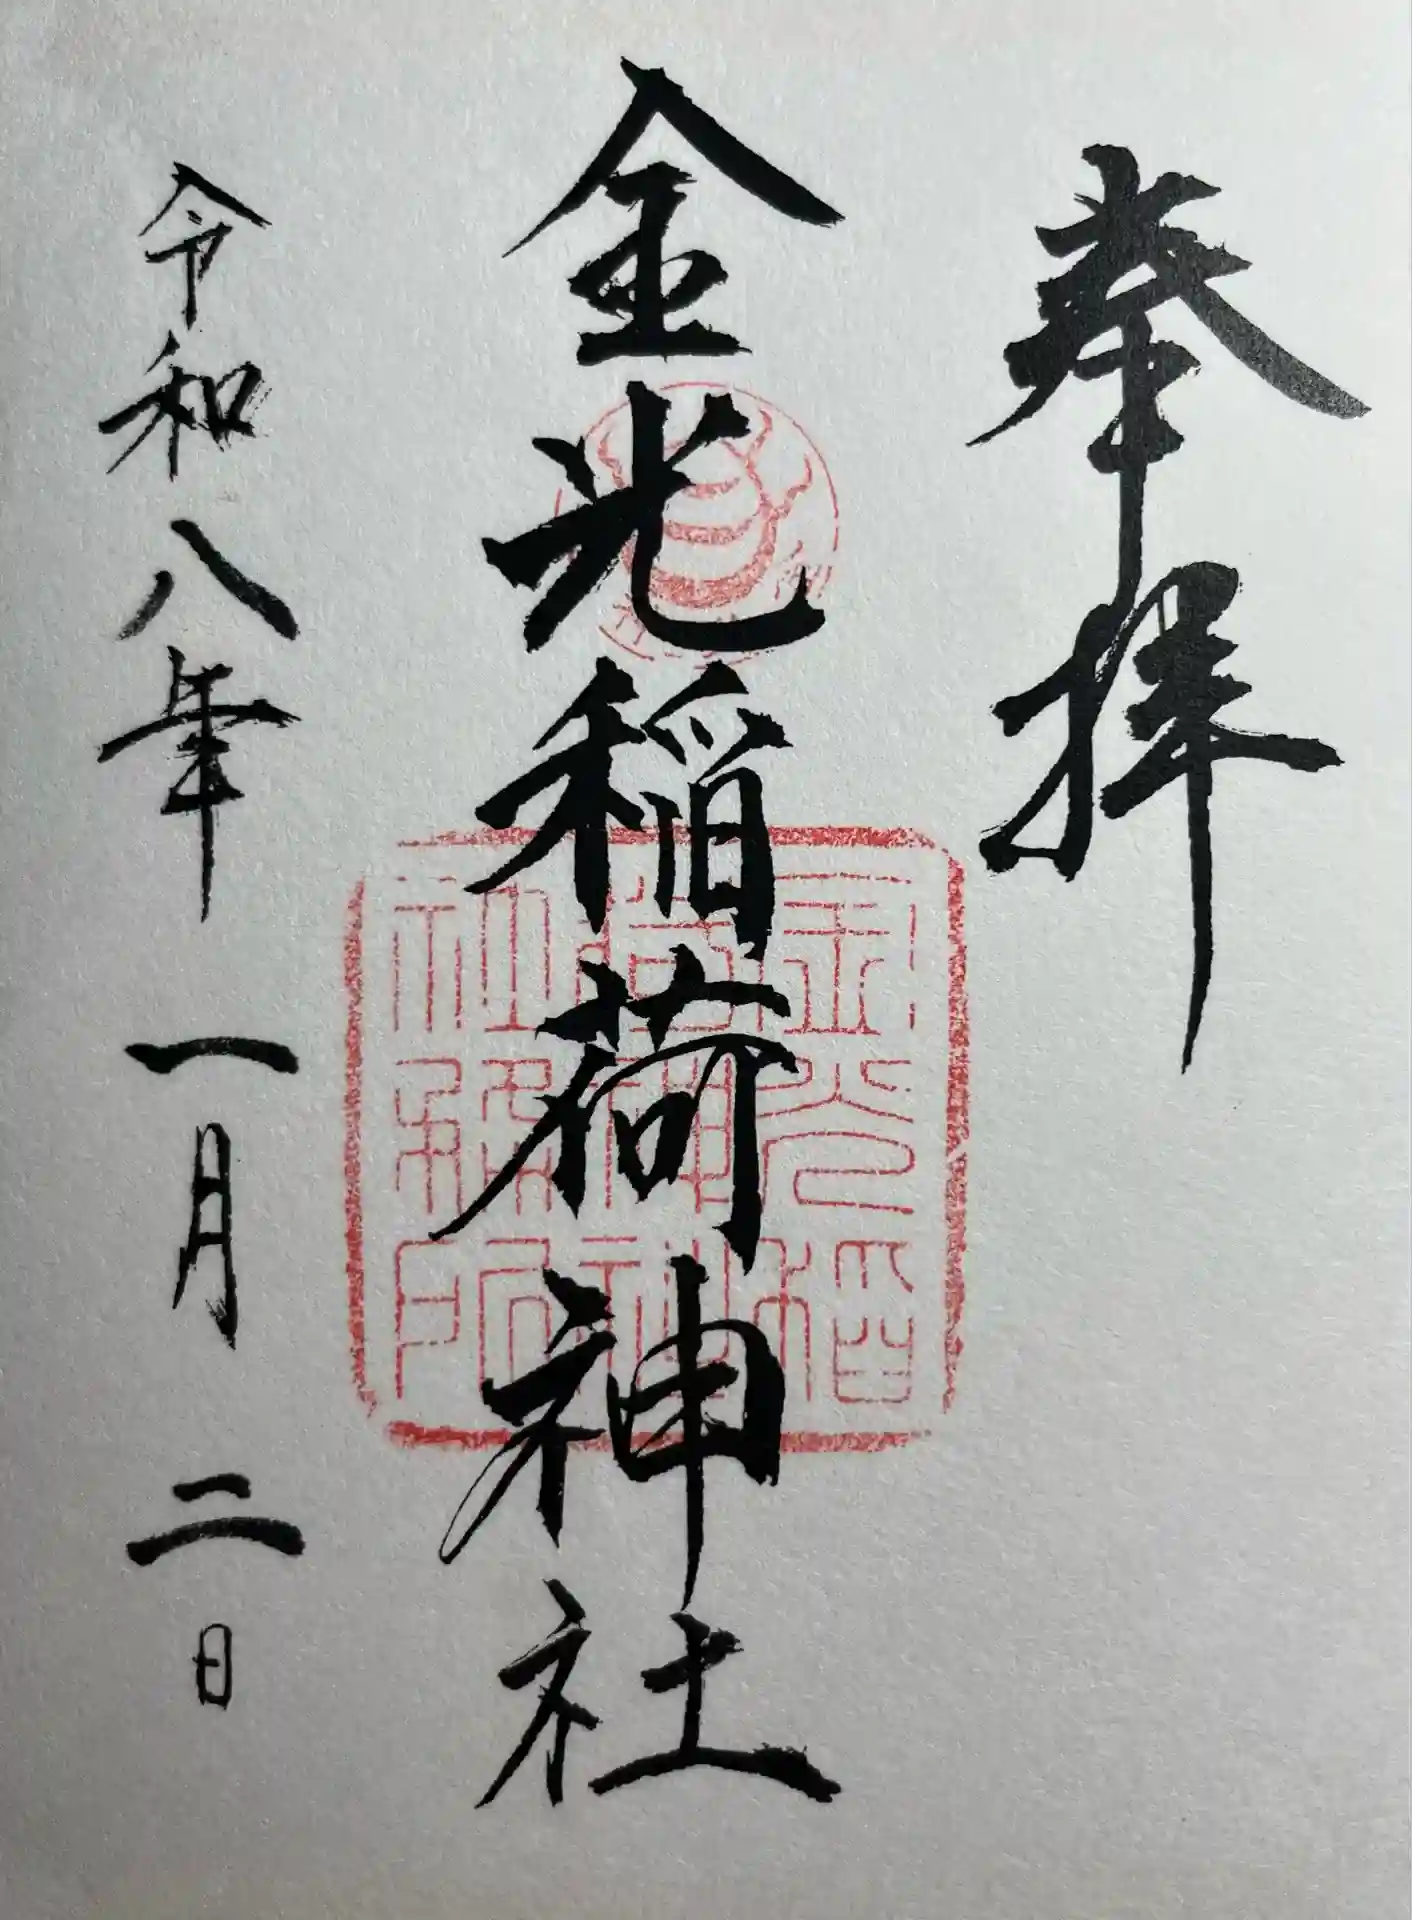 奉拝
金光稲荷神社
金光稲荷神社社務所
令和八年一月二日